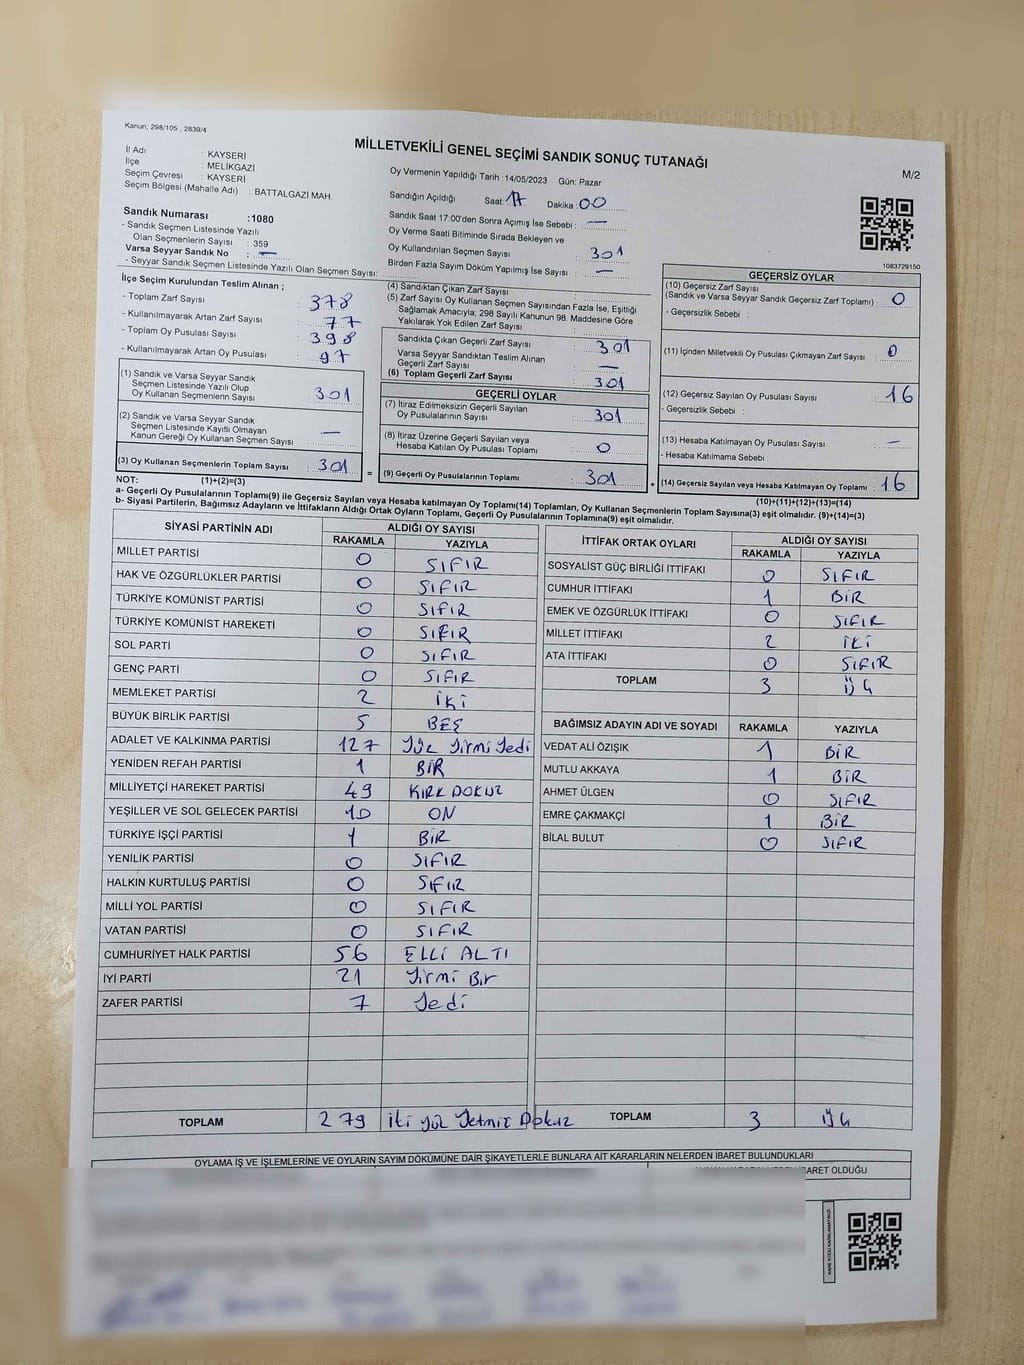 Kanun; 298/105 , 2839/4
MİLLETVEKİLİ GENEL SEÇİMİ SANDIK SONUÇ TUTANAĞI
M/2
İl Adı : KAYSERİ
İlçe : MELİKGAZİ
Seçim Çevresi : KAYSERİ
Seçim Bölgesi (Mahalle Adı) : BATTALGAZİ MAH.
Oy Vermenin Yapıldığı Tarih :14/05/2023 Gün: Pazar
Sandığın Açıldığı Saat: 17 Dakika : 00
Sandık Saat 17:00'den Sonra Açımış İse Sebebi : —
Oy Verme Saati Bitiminde Sırada Bekleyen ve
Oy Kullandırılan Seçmen Sayısı : 301
Birden Fazla Sayım Döküm Yapılmış İse Sayısı : —
1083729150
Sandık Numarası :1080
- Sandık Seçmen Listesinde Yazılı
Olan Seçmenlerin Sayısı : 359
Varsa Seyyar Sandık No : —
- Seyyar Sandık Seçmen Listesinde Yazılı Olan Seçmen Sayısı:
İlçe Seçim Kurulundan Teslim Alınan ;
- Toplam Zarf Sayısı : 378
- Kullanılmayarak Artan Zarf Sayısı : 77
- Toplam Oy Pusulası Sayısı : 398
- Kullanılmayarak Artan Oy Pusulası : 97
(1) Sandık ve Varsa Seyyar Sandık
Seçmen Listesinde Yazılı Olup
Oy Kullanan Seçmenlerin Sayısı : 301
(2) Sandık ve Varsa Seyyar Sandık
Seçmen Listesinde Kayıtlı Olmayan
Kanun Gereği Oy Kullanan Seçmen Sayısı : —
(3) Oy Kullanan Seçmenlerin Toplam Sayısı : 301
(4) Sandıktan Çıkan Zarf Sayısı
(5) Zarf Sayısı Oy Kullanan Seçmen Sayısından Fazla İse, Eşitliği
Sağlamak Amacıyla; 298 Sayılı Kanunun 98. Maddesine Göre
Yakılarak Yok Edilen Zarf Sayısı :
Sandıkta Çıkan Geçerli Zarf Sayısı : 301
Varsa Seyyar Sandıktan Teslim Alınan
Geçerli Zarf Sayısı : —
(6) Toplam Geçerli Zarf Sayısı : 301
GEÇERLİ OYLAR
(7) İtiraz Edilmeksizin Geçerli Sayılan
Oy Pusulalarının Sayısı : 301
(8) İtiraz Üzerine Geçerli Sayılan veya
Hesaba Katılan Oy Pusulaları Toplamı : 0
= (9) Geçerli Oy Pusulalarının Toplamı : 301
GEÇERSİZ OYLAR
(10) Geçersiz Zarf Sayısı
(Sandık ve Varsa Seyyar Sandık Geçersiz Zarf Toplamı) : 0
- Geçersizlik Sebebi :
(11) İçinden Milletvekili Oy Pusulası Çıkmayan Zarf Sayısı : 0
(12) Geçersiz Sayılan Oy Pusulası Sayısı : 16
- Geçersizlik Sebebi :
(13) Hesaba Katılmayan Oy Pusulası Sayısı : —
- Hesaba Katılmama Sebebi
+ (14) Geçersiz Sayılan veya Hesaba Katılmayan Oy Toplamı : 16
NOT: (1)+(2)=(3)
(10)+(11)+(12)+(13)=(14)
a- Geçerli Oy Pusulalarının Toplamı(9) ile Geçersiz Sayılan veya Hesaba katılmayan Oy Toplamı(14) Toplamları, Oy Kullanan Seçmenlerin Toplam Sayısına(3) eşit olmalıdır. (9)+(14)=(3)
b- Siyasi Partilerin, Bağımsız Adayların ve İttifakların Aldığı Ortak Oyların Toplamı, Geçerli Oy Pusulalarının Toplamına(9) eşit olmalıdır.
SİYASİ PARTİNİN ADI ALDIĞI OY SAYISI
RAKAMLA YAZIYLA
MİLLET PARTİSİ 0 SIFIR
HAK VE ÖZGÜRLÜKLER PARTİSİ 0 SIFIR
TÜRKİYE KOMÜNİST PARTİSİ 0 SIFIR
TÜRKİYE KOMÜNİST HAREKETİ 0 SIFIR
SOL PARTİ 0 SIFIR
GENÇ PARTİ 0 SIFIR
MEMLEKET PARTİSİ 2 İKİ
BÜYÜK BİRLİK PARTİSİ 5 BEŞ
ADALET VE KALKINMA PARTİSİ 127 Yüz Yirmi Yedi
YENİDEN REFAH PARTİSİ 1 BİR
MİLLİYETÇİ HAREKET PARTİSİ 49 KIRK DOKUZ
YEŞİLLER VE SOL GELECEK PARTİSİ 10 ON
TÜRKİYE İŞÇİ PARTİSİ 1 BİR
YENİLİK PARTİSİ 0 SIFIR
HALKIN KURTULUŞ PARTİSİ 0 SIFIR
MİLLİ YOL PARTİSİ 0 SIFIR
VATAN PARTİSİ 0 SIFIR
CUMHURİYET HALK PARTİSİ 56 ELLİ ALTI
İYİ PARTİ 21 Yirmi Bir
ZAFER PARTİSİ 7 Yedi
TOPLAM 279 İki Yüz Yetmiş Dokuz
İTTİFAK ORTAK OYLARI ALDIĞI OY SAYISI
RAKAMLA YAZIYLA
SOSYALİST GÜÇ BİRLİĞİ İTTİFAKI 0 SIFIR
CUMHUR İTTİFAKI 1 BİR
EMEK VE ÖZGÜRLÜK İTTİFAKI 0 SIFIR
MİLLET İTTİFAKI 2 İKİ
ATA İTTİFAKI 0 SIFIR
TOPLAM 3 Üç
BAĞIMSIZ ADAYIN ADI VE SOYADI RAKAMLA YAZIYLA
VEDAT ALİ ÖZIŞIK 1 BİR
MUTLU AKKAYA 1 BİR
AHMET ÜLGEN 0 SIFIR
EMRE ÇAKMAKÇİ 1 BİR
BİLAL BULUT 0 SIFIR
TOPLAM 3 Üç
OYLAMA İŞ VE İŞLEMLERİNE VE OYLARIN SAYIM DÖKÜMÜNE DAİR ŞİKAYETLERLE BUNLARA AİT KARARLARIN NELERDEN İBARET BULUNDUKLARI
İBARET OLDUĞU
KARE KODU KARALAMAYINIZ!